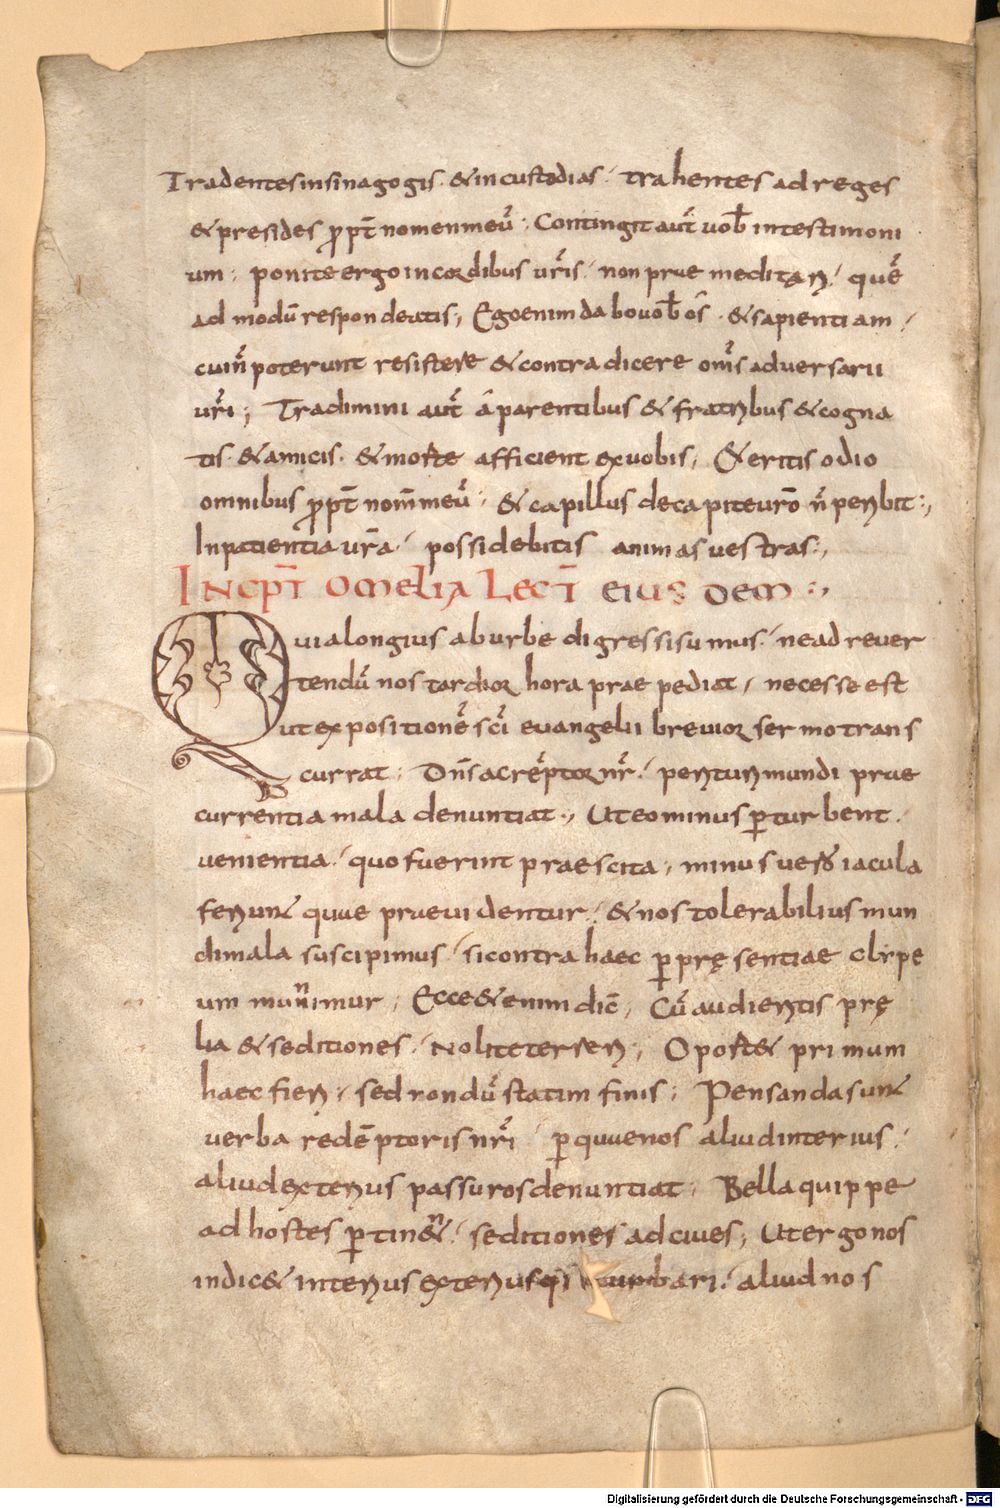 Tradentes insinagogis · & incustodias · trahentes ad reges
& presides ꝓpt̄ nomen meū · Contingit aut̄ uob̄ intestimoni
um · ponite ergo in cordibus ur̄is · non prae meditari · quē
ad modū respondeatis ; Ego enim dabo uob̄ os · & sapientiam ·
cui n̄ poterunt resistere & contradicere om̄s aduersarii
ur̄i ; Tradimini aut̄ á parentibus & fratribus & cogna
tis · & amicis · & morte afficient ex uobis ; & eritis odio
omnibus ꝓpt̄ nom̄ meū ; & capillus de capite uro n̄ peribit ·;,
In patientia ur̄a · possidebitis animas uestras ;,
INCPT̄ OMELIA LECT̄ EIUSDEM ·:,
Quia longius ab urbe digressi sumus · ne ad reuer
tendū nos tardior hora prae pediat , necesse est
ut expositionē sc̄i euangelii breuior sermo trans
currat ; Dn̄s ac rēptor nr̄ · perituri mundi prae
currentia mala denuntiat ·, Ut eo minus ꝑturbent
uenientia · quo fuerint praescita , minus uero iacula
feriunt quae praeuidentur · & nos tolerabilius mun
di mala suscipimus · si contra haec ꝑ pręsentiae clype
um munnimur , Ecce & enim dic̄ , Cū audieritis prę
lia & seditiones · Nolite terreri ; Oport& primum
haec fieri · sed nondū statim finis ; Pensanda sunt
uerba redēptoris nr̄i · ꝑ quae nos aliud interius ·
aliud exterius passuros denuntiat ; Bella quippe
ad hostes ꝑtinent · seditiones ad ciues ; Ut ergo nos
indic& interius exteriusq; turbari · aliud nos
Digitalisierung gefördert durch die Deutsche Forschungsgemeinschaft - DFG